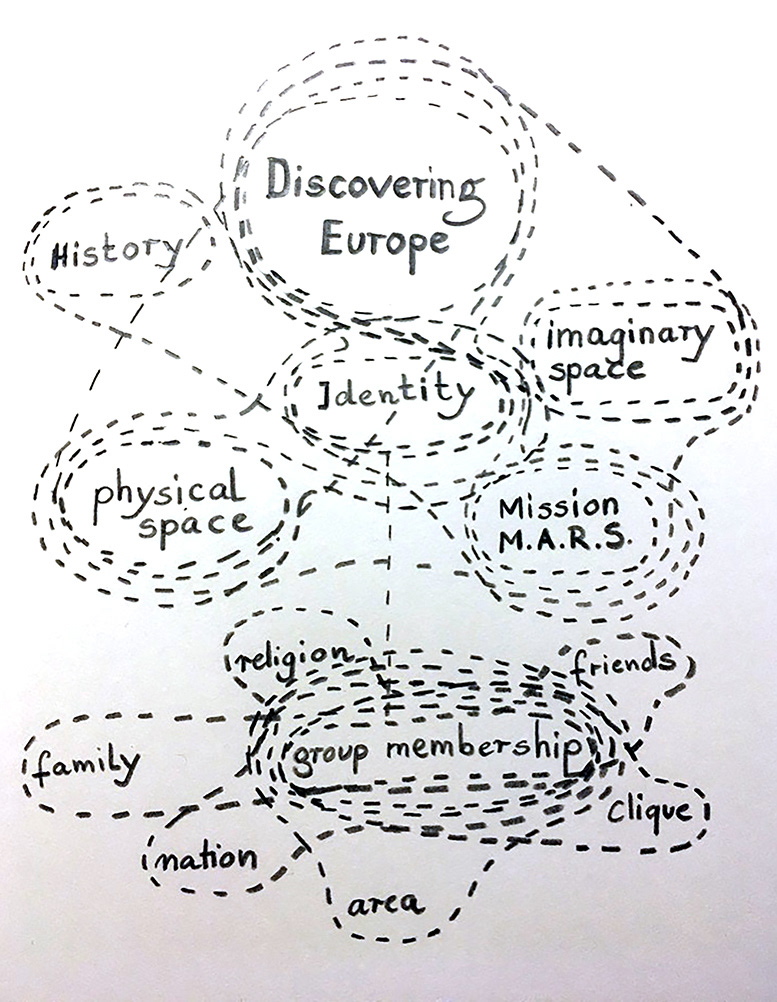 Discovering
Europe
History
imaginary
space
Identity
physical
space
Mission
M.A.R.S.
religion
friends
group membership
family
clique
nation
area